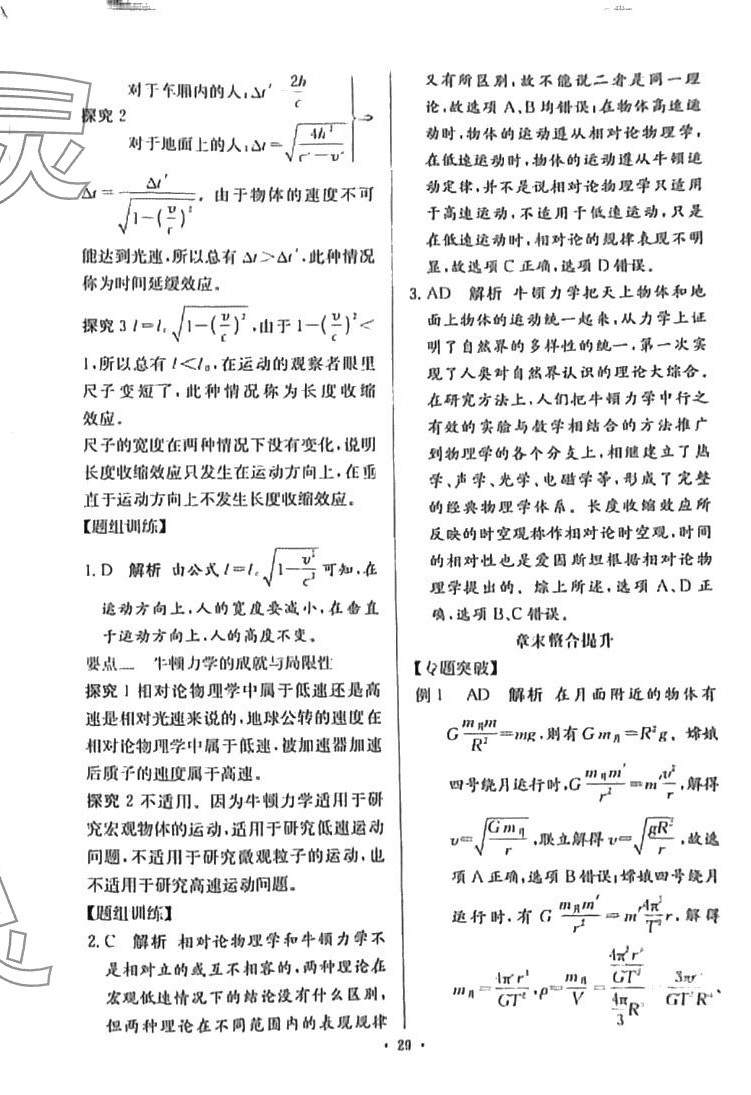 对于车厢内的人:Δt′ 2h/c
探究 2
对于地面上的人:Δt=√(4h²/(c²−v²)) ⇒
Δt=Δt′/√(1−(v/c)²), 由于物体的速度不可
能达到光速,所以总有 Δt>Δt′,此种情况
称为时间延缓效应。
探究 3 l=l₀√(1−(v/c)²),由于 1−(v/c)²<
1,所以总有 l<l₀,在运动的观察者眼里
尺子变短了,此种情况称为长度收缩
效应。
尺子的宽度在两种情况下没有变化,说明
长度收缩效应只发生在运动方向上,在垂
直于运动方向上不发生长度收缩效应。
【题组训练】
1. D 解析 由公式 l=l₀√(1−v²/c²) 可知,在
运动方向上,人的宽度要减小,在垂直
于运动方向上,人的高度不变。
要点二 牛顿力学的成就与局限性
探究 1 相对论物理学中属于低速还是高
速是相对光速来说的,地球公转的速度在
相对论物理学中属于低速,被加速器加速
后质子的速度属于高速。
探究 2 不适用。因为牛顿力学适用于研
究宏观物体的运动,适用于研究低速运动
问题,不适用于研究微观粒子的运动,也
不适用于研究高速运动问题。
【题组训练】
2. C 解析 相对论物理学和牛顿力学不
是相对立的或互不相容的,两种理论在
宏观低速情况下的结论没有什么区别,
但两种理论在不同范围内的表现规律
又有所区别,故不能说二者是同一理
论,故选项 A、B 均错误;在物体高速运
动时,物体的运动遵从相对论物理学,
在低速运动时,物体的运动遵从牛顿运
动定律,并不是说相对论物理学只适用
于高速运动,不适用于低速运动,只是
在低速运动时,相对论的规律表现不明
显,故选项 C 正确,选项 D 错误。
3. AD 解析 牛顿力学把天上物体和地
面上物体的运动统一起来,从力学上证
明了自然界的多样性的统一,第一次实
现了人类对自然界认识的理论大综合。
在研究方法上,人们把牛顿力学中行之
有效的实验与数学相结合的方法推广
到物理学的各个分支上,相继建立了热
学、声学、光学、电磁学等,形成了完整
的经典物理学体系。长度收缩效应所
反映的时空观称作相对论时空观,时间
的相对性也是爱因斯坦根据相对论物
理学提出的。综上所述,选项 A、D 正
确,选项 B、C 错误。
章末整合提升
【专题突破】
例 1 AD 解析 在月面附近的物体有
G m月m/R²=mg,则有 Gm月=R²g。嫦娥
四号绕月运行时,G m月m′/r²=m′v²/r,解得
v=√(Gm月/r),联立解得 v=√(gR²/r),故选
项 A 正确,选项 B 错误;嫦娥四号绕月
运行时,有 G m月m′/r²=m′(4π²/T²)r,解得
m月=4π²r³/GT²,ρ=m月/V=(4π²r³/GT²)/((4π/3)R³)=3πr³/GT²R³,
· 29 ·
灵